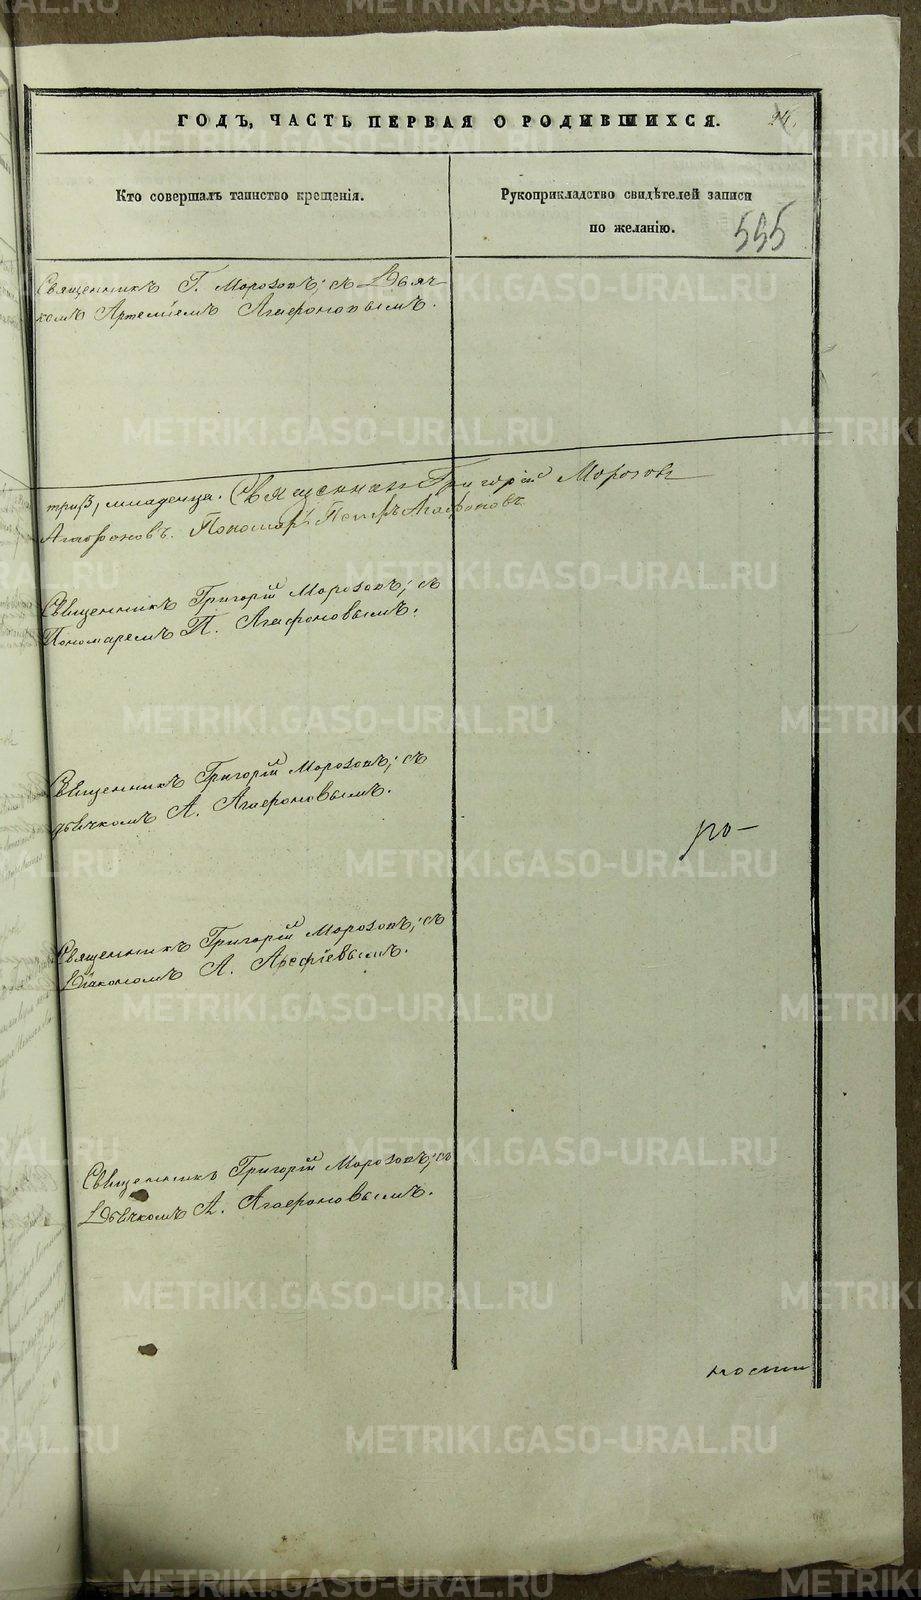 ГОДЪ, ЧАСТЬ ПЕРВАЯ О РОДИВШИХСЯ. 24.
Кто совершалъ таинство крещенія.
Рукоприкладство свидѣтелей записи
по желанію.
555
Священникъ Г. Морозовъ; съ Дьяч-
комъ Артеміемъ Агафоновымъ.
три, младенца. Священникъ Григорій Морозовъ
Агафоновъ. Пономарь Петръ Агафоновъ
Священникъ Григорій Морозовъ; съ
Пономаремъ П. Агафоновымъ.
Священникъ Григорій Морозовъ; съ
дьячкомъ А. Агафоновымъ.
ро-
Священникъ Григорій Морозовъ; съ
Діакономъ А. Арефіевымъ.
Священникъ Григорій Морозовъ; съ
Дьячкомъ А. Агафоновымъ.
ности
METRIKI.GASO-URAL.RU